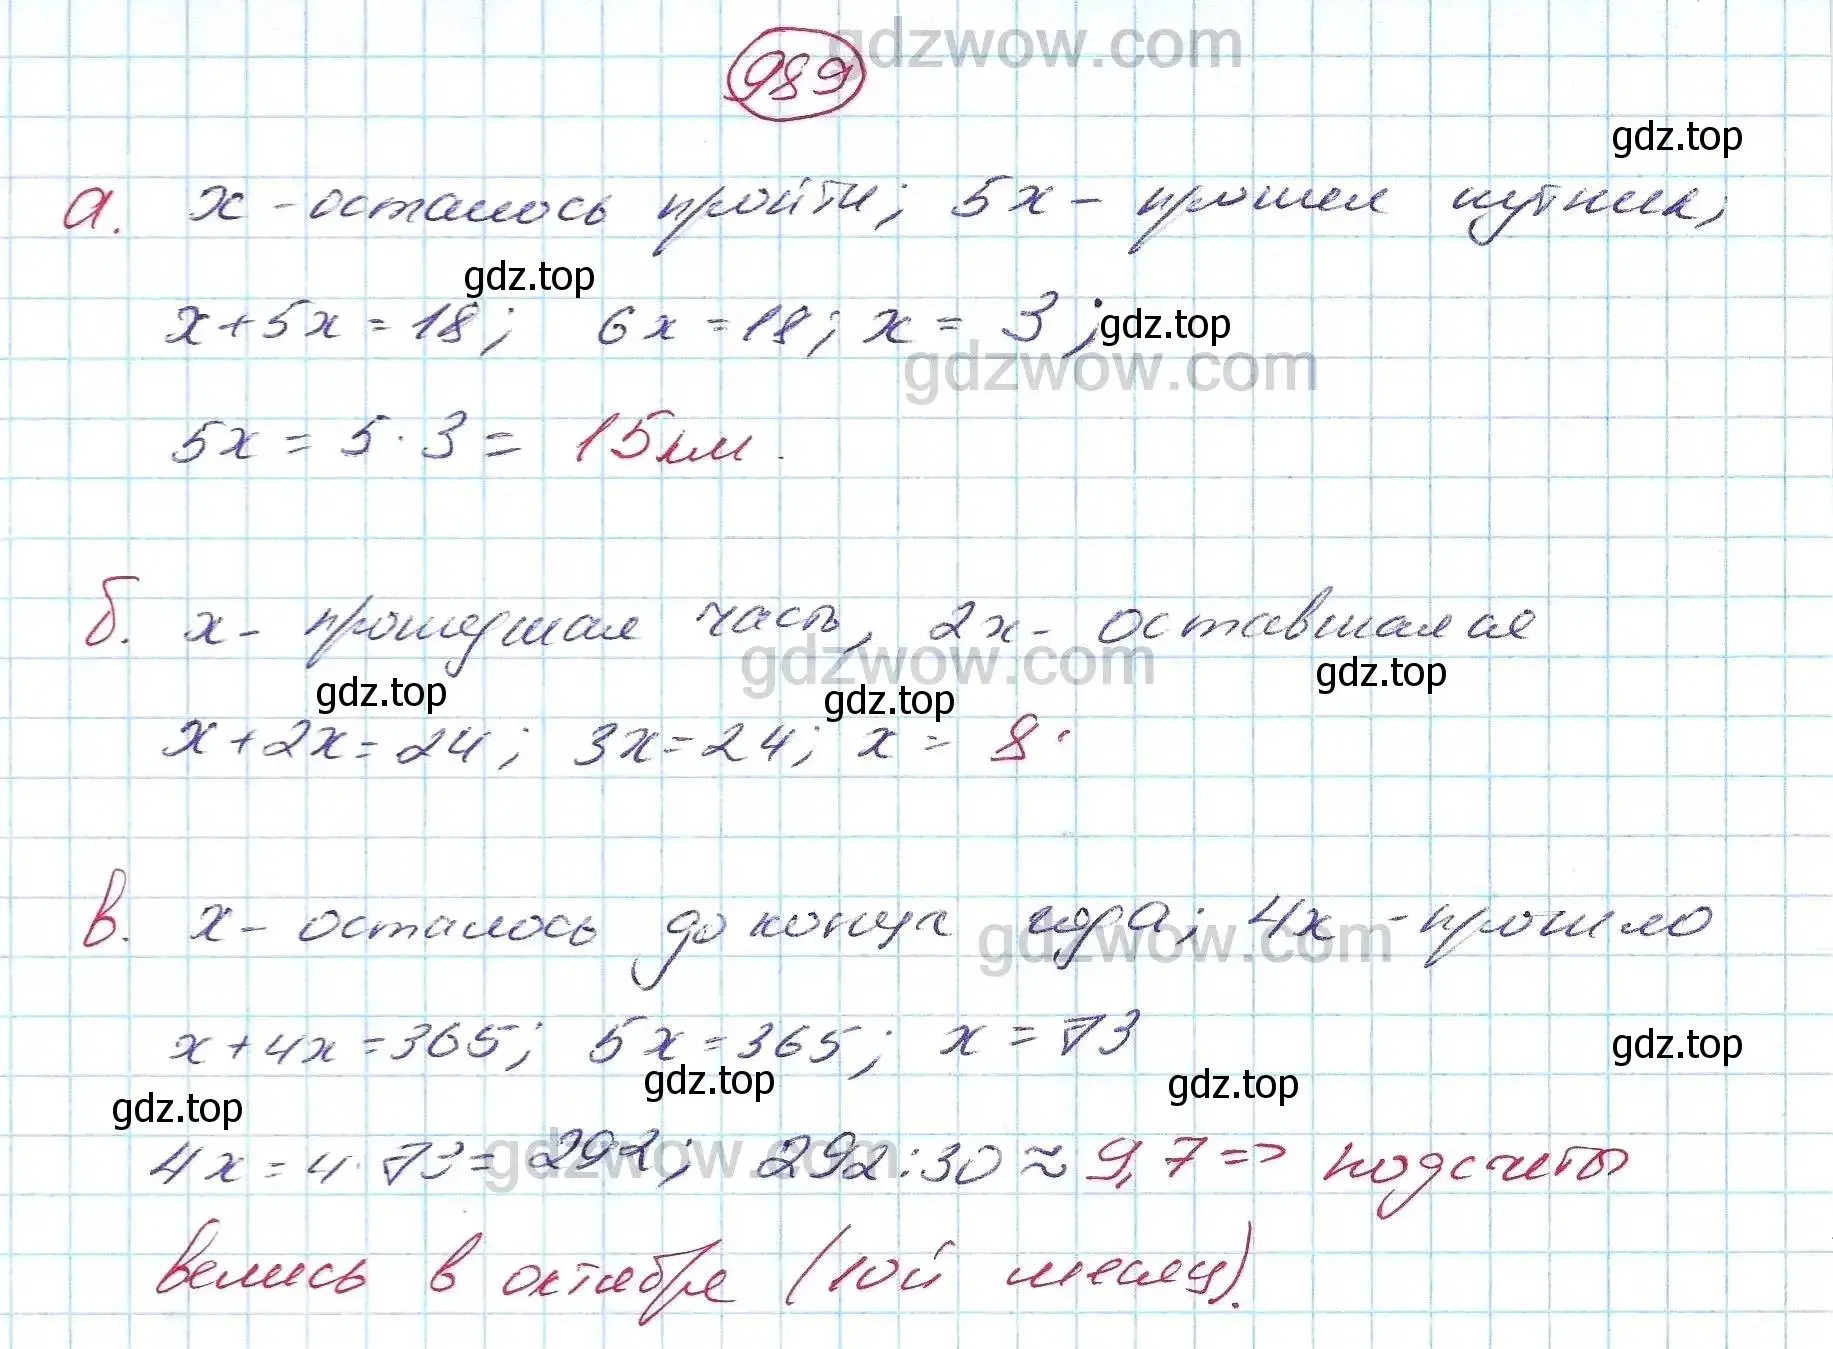 gdzwow.com
989
gdz.top
а. х - осталось пройти; 5х - прошел путник,
gdz.top
х+5х=18; 6х=18; х = 3;
gdz.top
gdzwow.com
5х = 5·3 = 15км.
б. х- прошедшая часть, 2х- оставшаяся
gdzwow.com
gdz.top
gdz.top
gdz.top
х+2х=24; 3х=24; х = 8.
в. х- осталось до конца года; 4х - прошло
gdzwow.com
х+4х=365; 5х=365; х = 73
gdz.top
gdz.top
gdz.top
gdz.top
4х=4·73=292; 292:30≈9,7 => подсчеты
gdzwow.com
велись в октябре (10й месяц).